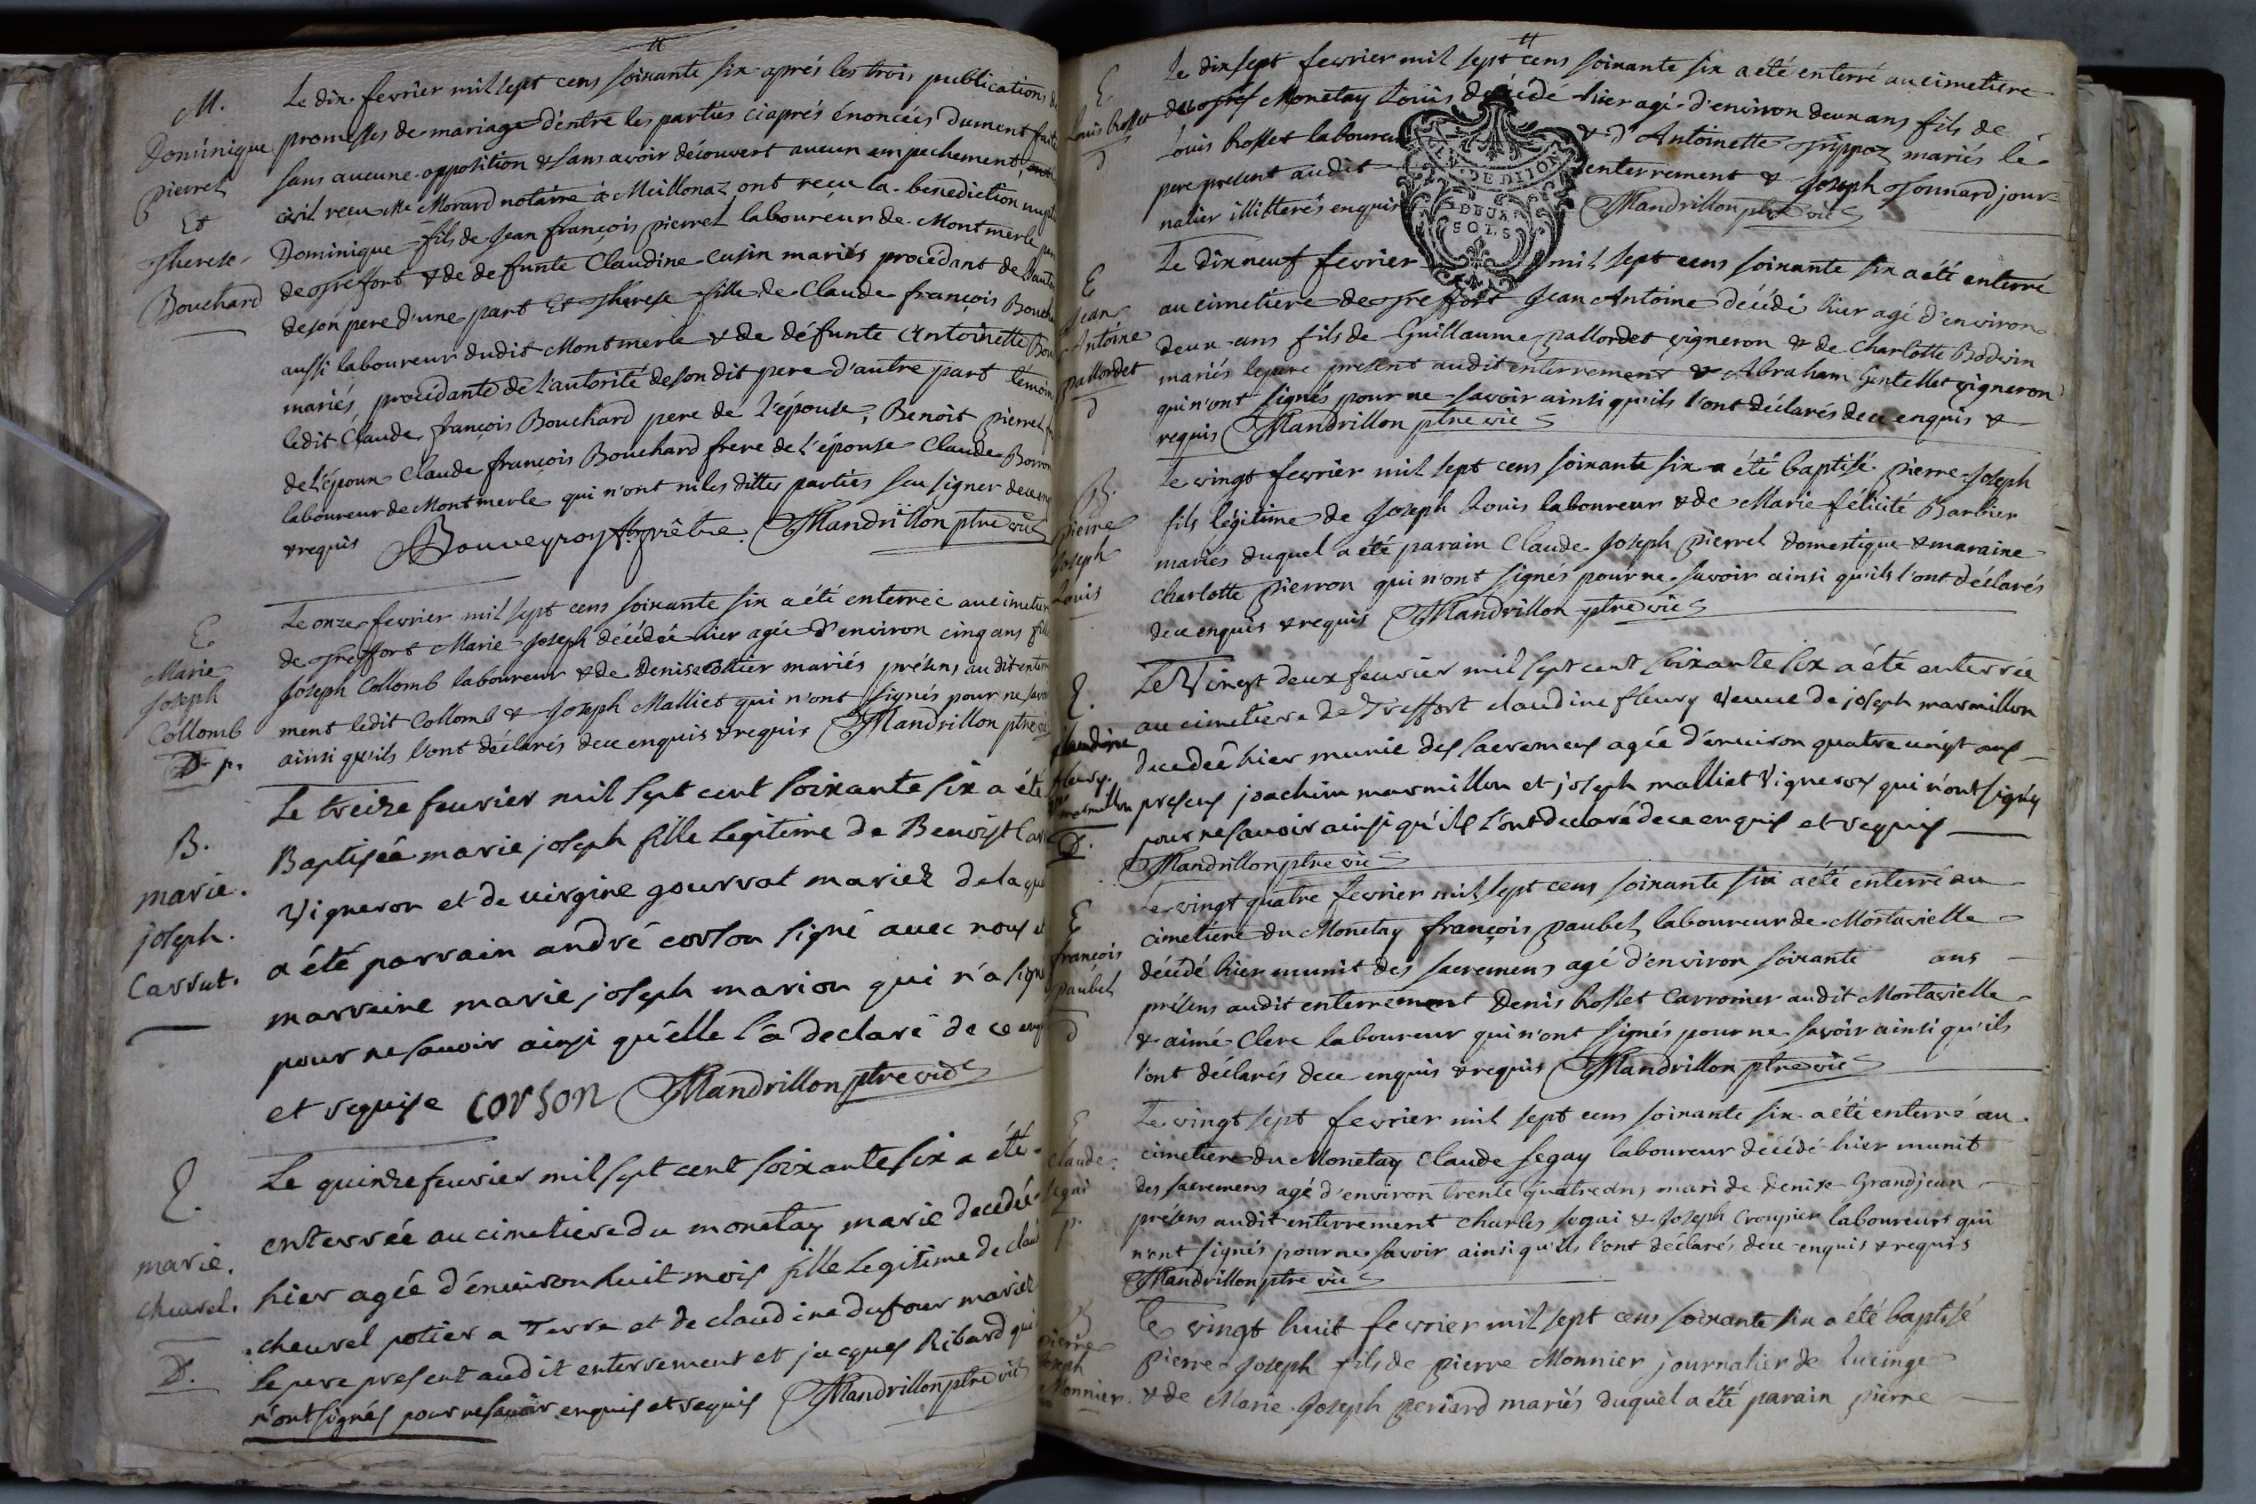 M.
Dominique
pierrel
Et
Therese
Bouchard
Le dix fevrier mil sept cens soixante six aprés les trois publications
promesses de mariage d'entre les parties ciaprés énoncéés dument
sans aucune opposition & sans avoir découvert aucun empechement,
civil reçu Me Morard notaire à Meillonaz ont recu la benediction
Dominique fils de Jean françois pierrel laboureur de Montmerle
de Treffort & de defunte Claudine Cusin mariés procédant de
de son pere d'une part Et Thérese fille de Claude françois
aussi laboureur dudit Montmerle & de défunte Antoinette
mariés procédante de l'autorité de son dit pere d'autre part
ledit Claude françois Bouchard pere de l'épouse, Benoit pierrel
de l'époux Claude françois Bouchard frere de l'épouse Claude
laboureur de Montmerle qui n'ont ni les dittes parties seu signer
& requis Bouveyron prêtre Mandrillon ptre vic
E
Marie
Joseph
Collomb
D p.
Le onze fevrier mil sept cens soixante six a été enterréé au
de Treffort Marie Joseph décédéé hier agée d'environ cinq ans
Joseph Collomb laboureur & de Denise mariés présens au dit
ment ledit Collomb & Joseph Malliet qui n'ont signés pour ne
ainsi qu'ils l'ont déclarés de ce enquis & requis Mandrillon ptre
B.
marie.
joseph.
Carrut.
Le treize feuvrier mil sept cent soixante six a été
Baptiséé marie joseph fille legitime de Benoist
Vigneron et de virgine gourrat mariez de la
a été parrain andré corson signé avec nous
marraine marie joseph marion qui n'a
pour ne scavoir ainsi qu'elle l'a declaré de ce
et requise corson Mandrillon ptre vic
E.
marie.
cheurel.
D.
Le quinze feuvrier mil sept cent soixante six a été
enterréé au cimetiere du monetay marie decedéé
hier agéé d'énuiron huit mois fille Legitime de
cheurel potier a Terre et de claudine dufour mariez
le pere present audit enterrement et jacques Ribard qui
n'ont signés pour ne scavoir enquis et requis Mandrillon ptre vic
E.
Louis Rosset
D
Le dix sept fevrier mil sept cens soixante six a été enterré au cimetiere
Monetay Louis décédé hier agé d'environ deux ans fils de
Louis Rosset & d'Antoinette mariés le
pere present audit enterrement & Joseph Tonnard jour=
nalier illitterés enquis Mandrillon ptre vic
DEUX
SOLS
E
Jean
Antoine
pallordet
D
Le dix neuf fevrier mil sept cens soixante six a été enterré
au cimetiere de Treffort Jean Antoine décédé hier agé d'environ
deux ans fils de Guillaume pallordet vigneron & de Charlotte Bodwin
mariés le pere present audit enterrement & Abraham Gentellet vigneron
qui n'ont signés pour ne savoir ainsi qu'ils l'ont déclarés de ce enquis &
requis Mandrillon ptre vic
B.
pierre
Joseph
Louis
Le vingt fevrier mil sept cens soixante six a été baptisé pierre Joseph
fils légitime de Joseph Louis laboureur & de Marie félicité Barbier
mariés duquel a été parain Claude Joseph pierrel domestique & maraine
Charlotte pierron qui n'ont signés pour ne savoir ainsi qu'ils l'ont déclarés
de ce enquis & requis Mandrillon ptre vic
E.
Claudine
fleury
marmillon
D.
Le Vingt deux feuvrier mil sept cent soixante six a été enterrée
au cimetiere de Treffort claudine fleury Veuve de joseph marmillon
decedéé hier munie des sacremens agéé d'énuiron quatre vingt ans
presens joachim marmillon et joseph malliet Vignerons qui n'ont signés
pour ne scavoir ainsi qu'ils l'ont declaré de ce enquis et requis
Mandrillon ptre vic
E
françois
paubel
D
Le vingt quatre fevrier mil sept cens soixante six a été enterré au
cimetiere du Monetay françois paubel laboureur de Montavielle
décédé hier munit des sacremens agé d'environ soixante ans
présens audit enterrement Denis Rosset Carronier audit Montavielle
& aimé Clerc laboureur qui n'ont signés pour ne savoir ainsi qu'ils
l'ont déclarés de ce enquis & requis Mandrillon ptre vic
E
Claude
segai
p.
Le vingt sept fevrier mil sept cens soixante six a été enterré au
cimetiere du Monetay Claude segay laboureur décédé hier munit
des sacremens agé d'environ trente quatre ans mari de Denise Grandjean
présens audit enterrement Charles segai & Joseph Crozier laboureurs qui
n'ont signés pour ne savoir ainsi qu'ils l'ont déclarés de ce enquis & requis
Mandrillon ptre vic
B
pierre
Joseph
Monnier
Le vingt huit fevrier mil sept cens soixante six a été baptisé
pierre Joseph fils de pierre Monnier journalier de lucinge
& de Marie Joseph periard mariés duquel a été parain pierre